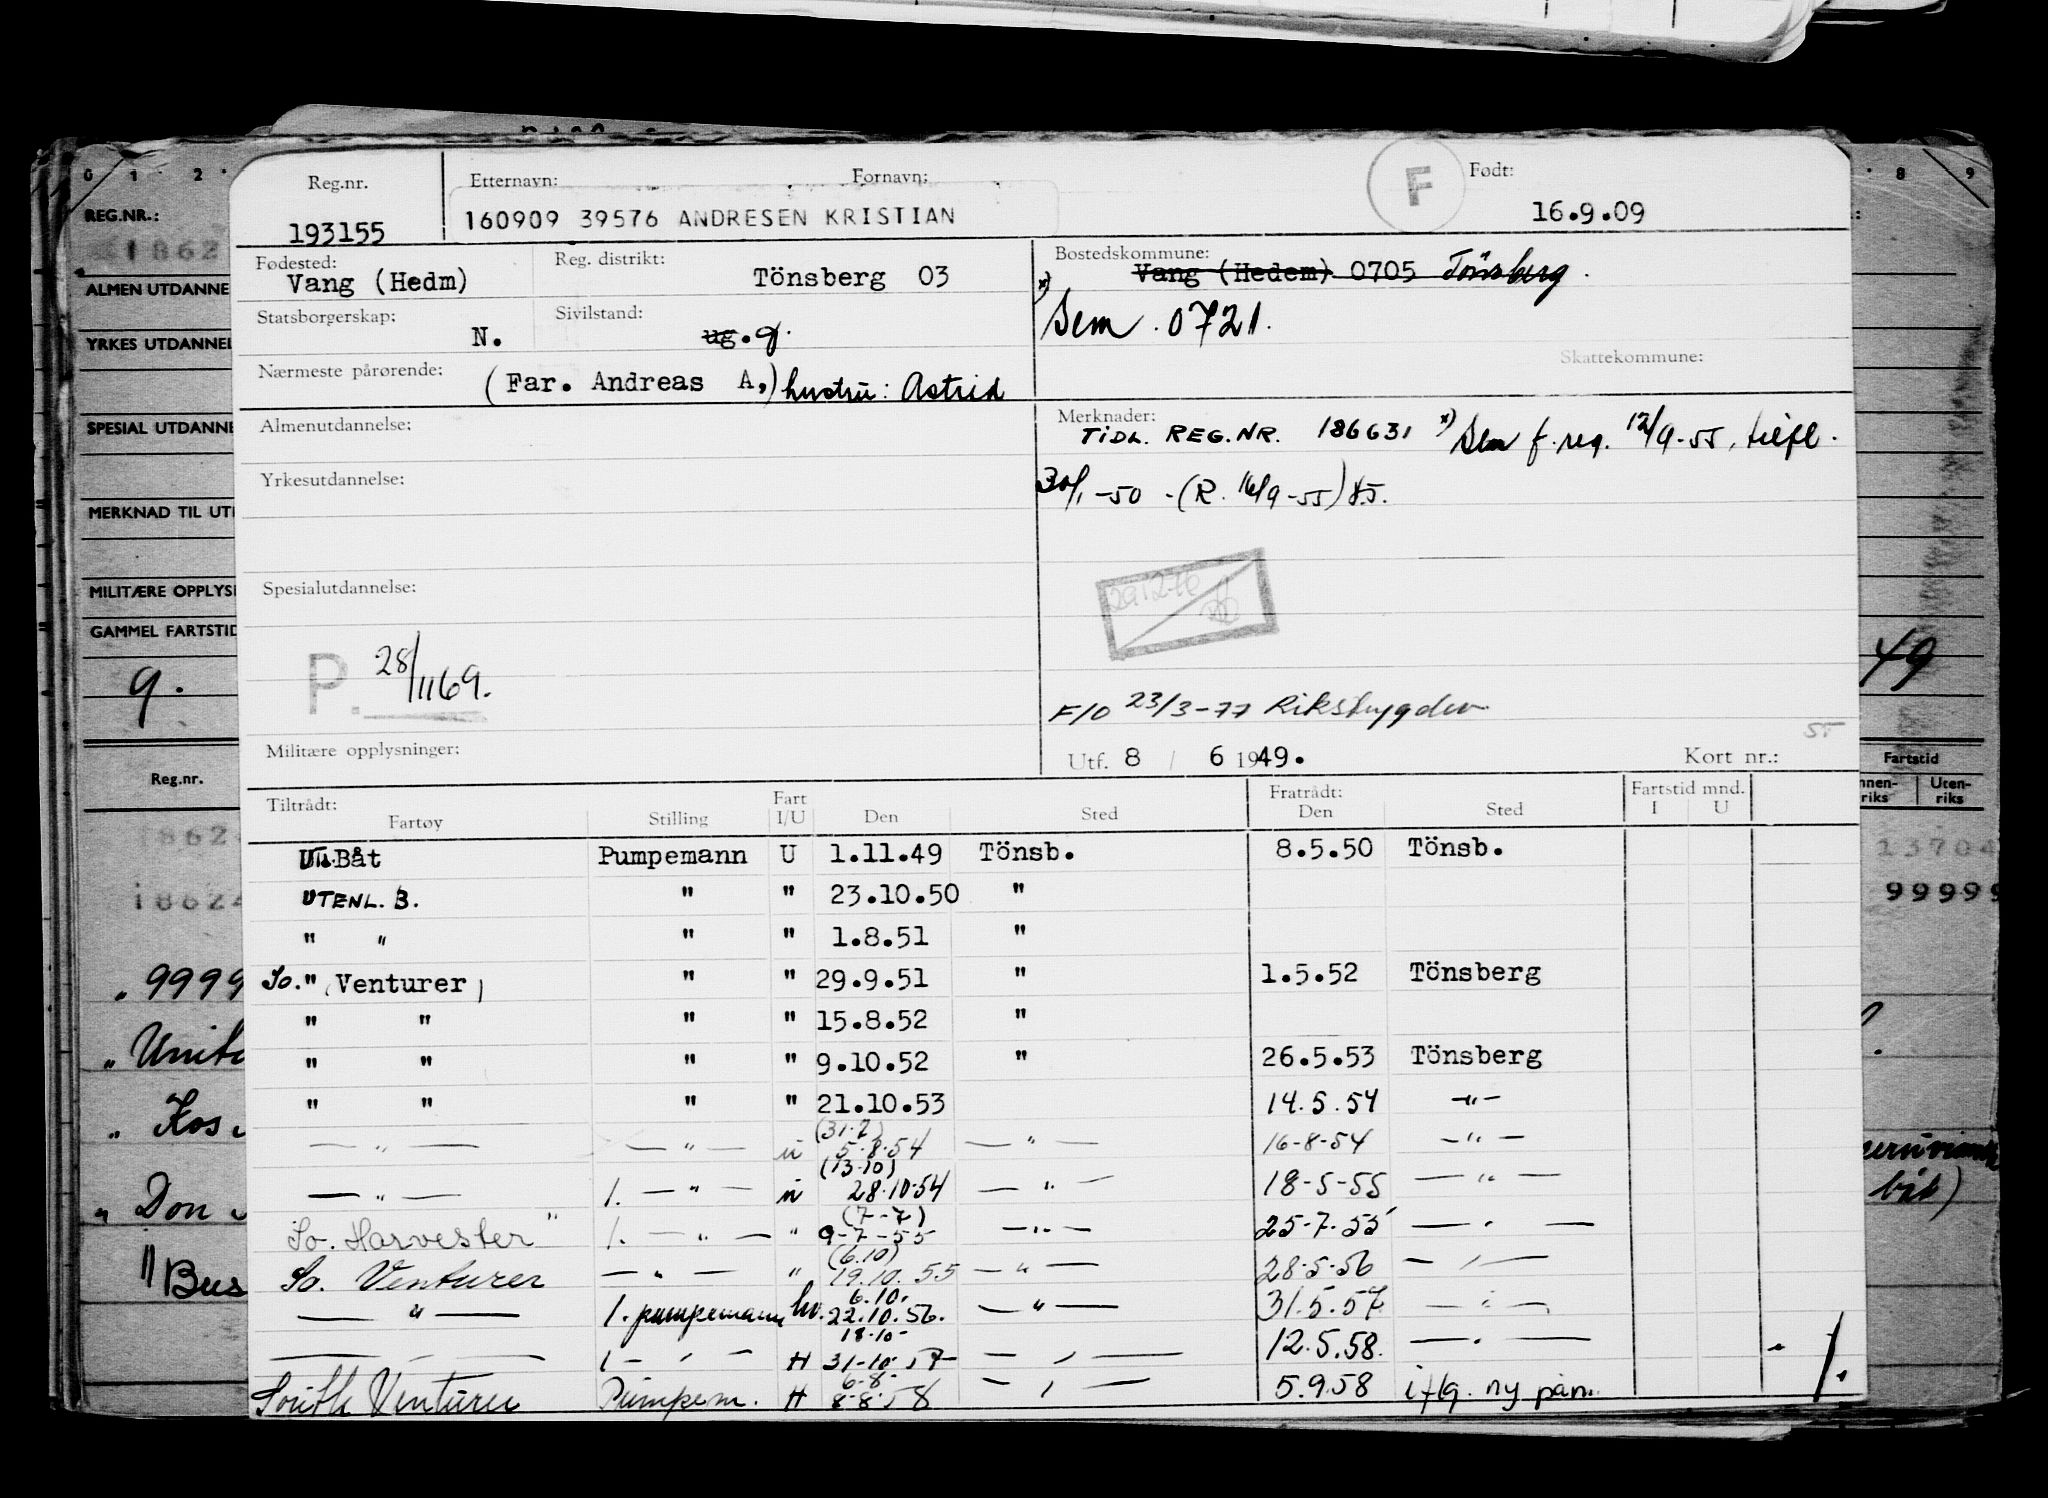 0 1 2 8 9
REG.NR.:
1862
ALMEN UTDANNE
YRKES UTDANNEL
SPESIAL UTDANNE
MERKNAD TIL UT
MILITÆRE OPPLYS
GAMMEL FARTSTID
9. 49
Reg.nr. Fartstid
nnen-riks Uten-riks
1862 13704
1862 99999
" 9999
" Unit
" Kos
" Don båt)
" Bus
Reg.nr. Etternavn: Fornavn: F Født:
193155 160909 39576 ANDRESEN KRISTIAN 16.9.09
Fødested: Reg. distrikt: Bostedskommune:
Vang (Hedm) Tönsberg 03 Vang (Hedem) 0705 Tönsberg.
Statsborgerskap: Sivilstand: x) Sem. 0721.
N. ug. g.
Skattekommune:
Nærmeste pårørende: (Far. Andreas A,) hustru: Astrid
Almenutdannelse: Merknader:
TIDL. REG.NR. 186631 x) Sem f. reg. 12/9-55, tilfl.
Yrkesutdannelse: 30/1-50 -(R. 16/9-55)
Spesialutdannelse: 291276
P. 28/1169.
F/O 23/3-77 Rikstrygden
Militære opplysninger: Utf. 8 / 6 1949. Kort nr.:
Tiltrådt: Fartøy Stilling Fart I/U Den Sted Fratrådt: Den Sted Fartstid mnd. I U
Utl. Båt Pumpemann U 1.11.49 Tönsb. 8.5.50 Tönsb.
UTENL. B. " " 23.10.50 "
" " " " 1.8.51 "
So. " Venturer " " 29.9.51 " 1.5.52 Tönsberg
" " " " 15.8.52 "
" " " " 9.10.52 " 26.5.53 Tönsberg
" " " " 21.10.53 14.5.54 -"-
— " — — " — u (31.7) 5.8.54 — " — 16-8-54 — " —
— " — 1. — " — u (13.10) 28.10.54 — " — 18-5-55 — " —
So. Harvester " 1. — " — " (7-7) 9-7-55 — " — 25-7.55 — " —
So. Venturer — " — " (6.10) 19.10.55 — " — 28-5-56 — " —
— " — 1. pumpemann hv. 6.10. 22.10.56. — " — 31.5.57 — " —
— " — 1 — " — H 18.10- 31-10.57 — " — 12.5.58. — " —
South Venturer Pumpem. H 6-8- 8-8.58 — " — 5.9.58 i flg. ny pån.